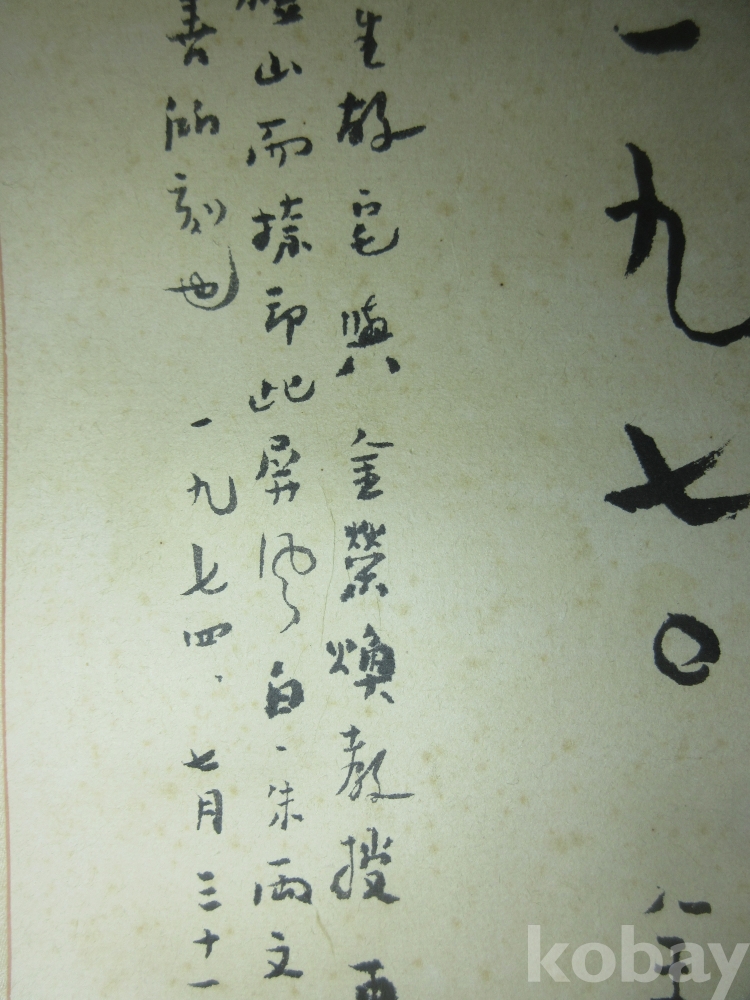 一九七〇
生 故 宅 與 金榮煥教授 再
山而捺印此屛風白、朱兩文
善 所刻也 一九七四、七月三十一
kobay